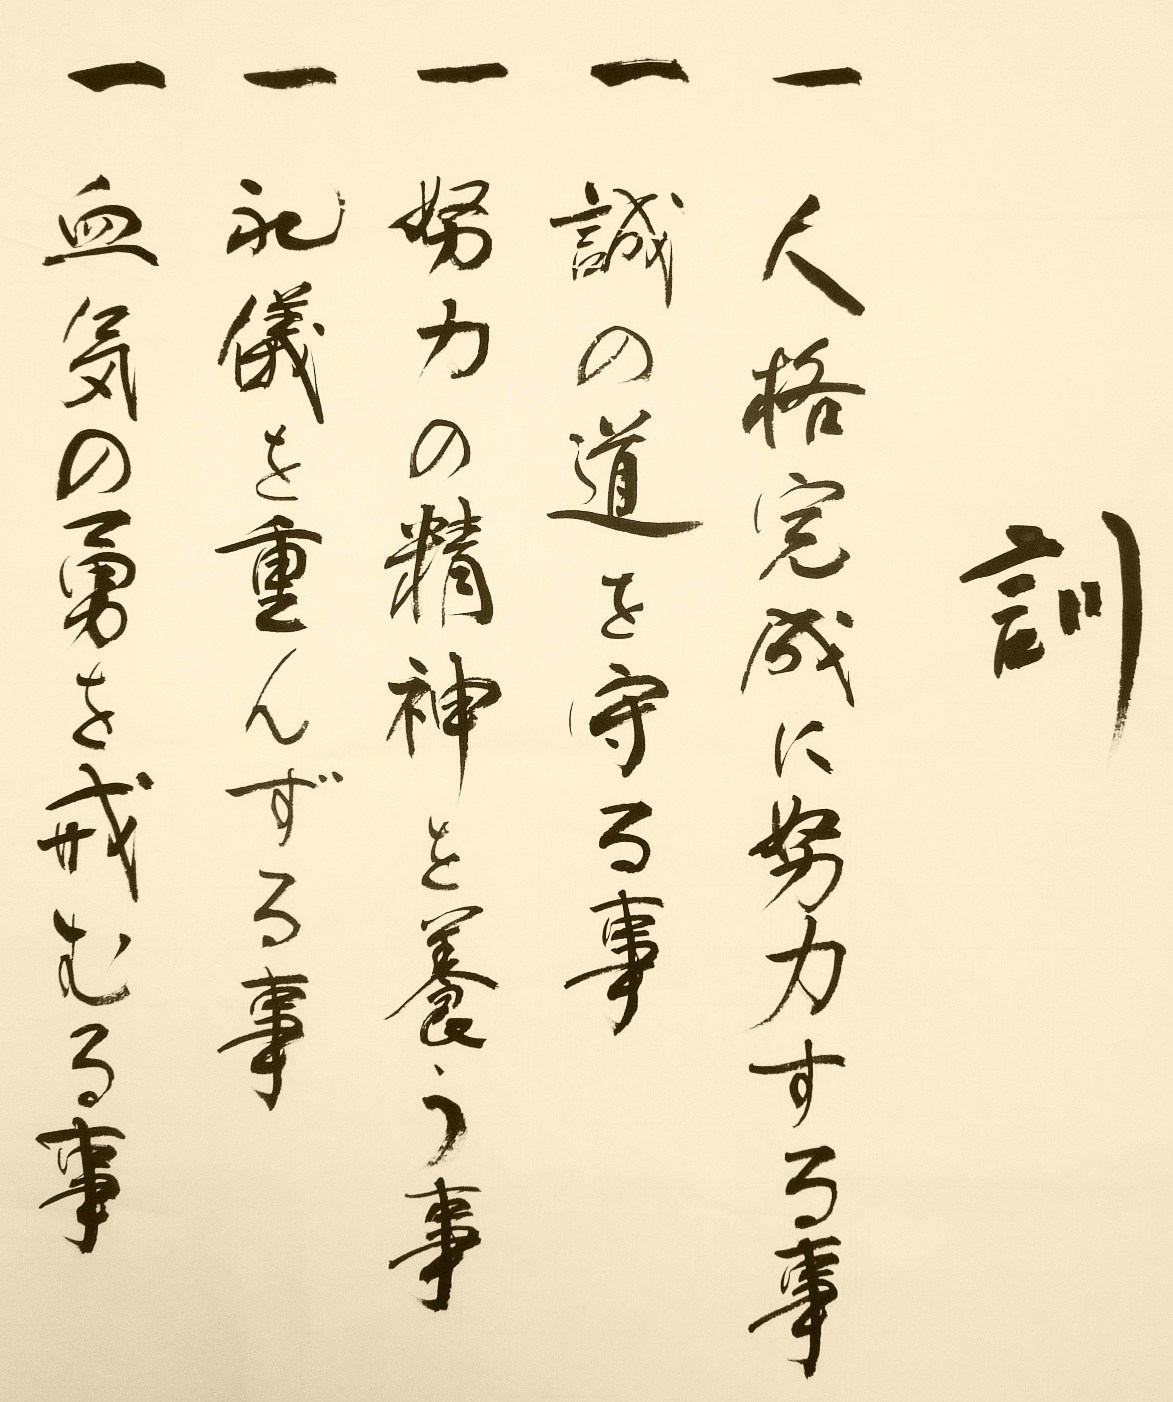 訓
一 人格完成に努力する事
一 誠の道を守る事
一 努力の精神を養う事
一 礼儀を重んずる事
一 血気の勇を戒むる事